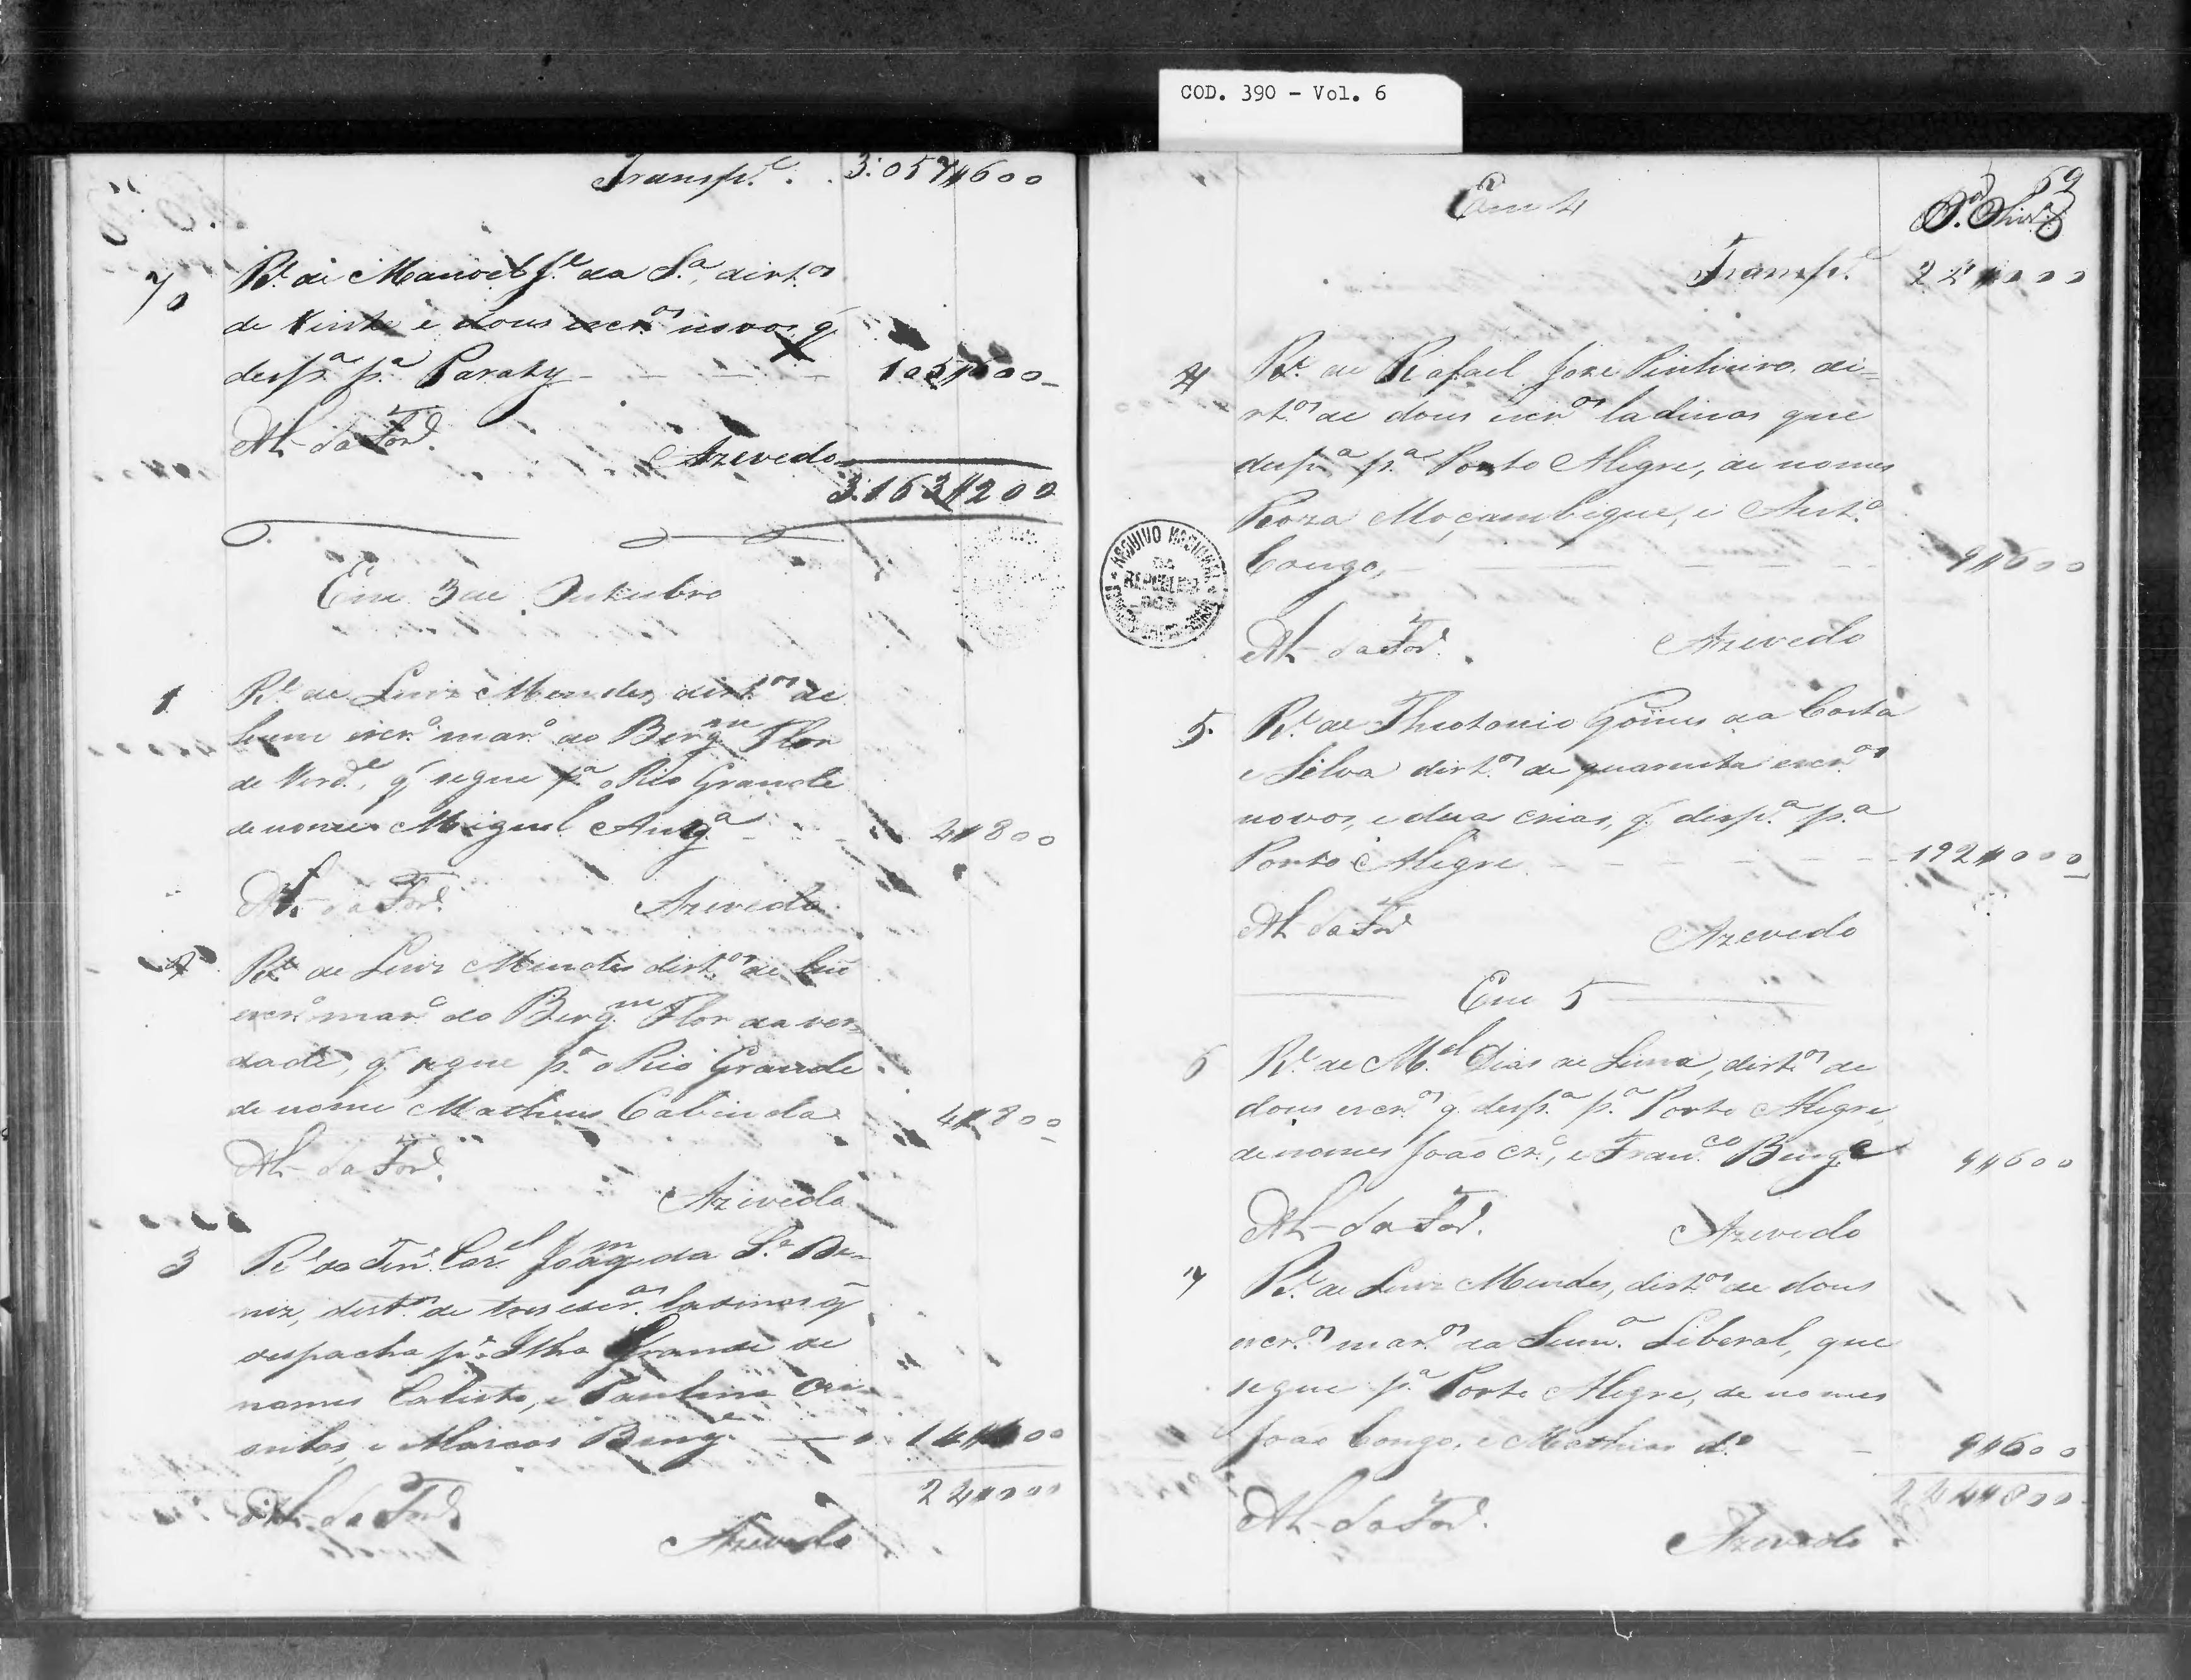 COD. 390 - Vol. 6
Transp.e 3:057$600
70 R.e de Manoel J.e da S.a, dirt.os
de vinte e dous escr.os novos q̃
desp.a p.a Paraty 105$600
Al- da Fon.
Azevedo
3:163$200
Em 3 de Outubro
1 R.e de Luiz Mendes, dirt.os de
hum escr.o mar.o do Berg.m Flor
de Verd.e, q̃ segue p.a o Rio Grande
de nome Miguel Ang.a 4$800
Al- da Fon.
Azevedo
2 R.e de Luiz Mendes dirt.os de hũ
escr.o mar.o do Berg.m Flor da ver-
dade, q̃ segue p.a o Rio Grande
de nome Matheus Cabinda 4$800
Al- da Fon.
Azevedo
3 R.e do Ten.e Cor.el Joaq.m da S.a Di-
niz, dirt.os de tres escr.os ladinos q̃
despacha p.a Ilha Grande de
nomes Calisto, e Paulino Cri-
oulos, e Marcos Beng.e 14$400
24$000
Al- da Fon.
Azevedo
59
Em 4
Transp.e 24$000
4 R.e de Rafael Joze Pinheiro, di=
rt.os de dous escr.os ladinos que
desp.a p.a Porto Alegre, de nomes
Roza Moçambique, e Ant.o
Congo, 9$600
ARQUIVO NACIONAL
Al- da Fon.
Azevedo
5 R.e de Theotonio Gomes da Costa
e Silva dirt.os de quarenta escr.os
novos, e duas crias, q̃ desp.a p.a
Porto Alegre 192$000
Al- da Fon.
Azevedo
Em 5
6 R.e de M.el Dias de Lima, dirt.os de
dous escr.os q̃ desp.a p.a Porto Alegre,
de nomes João Cr.o, e Fran.co Beng.e 9$600
Al- da Fon.
Azevedo
7 R.e de Luiz Mendes, dirt.os de dous
escr.os mar.os da Sum.a Liberal, que
segue p.a Porto Alegre, de nomes
João Congo, e Mathias d.o 9$600
244$800
Al- da Fon.
Azevedo